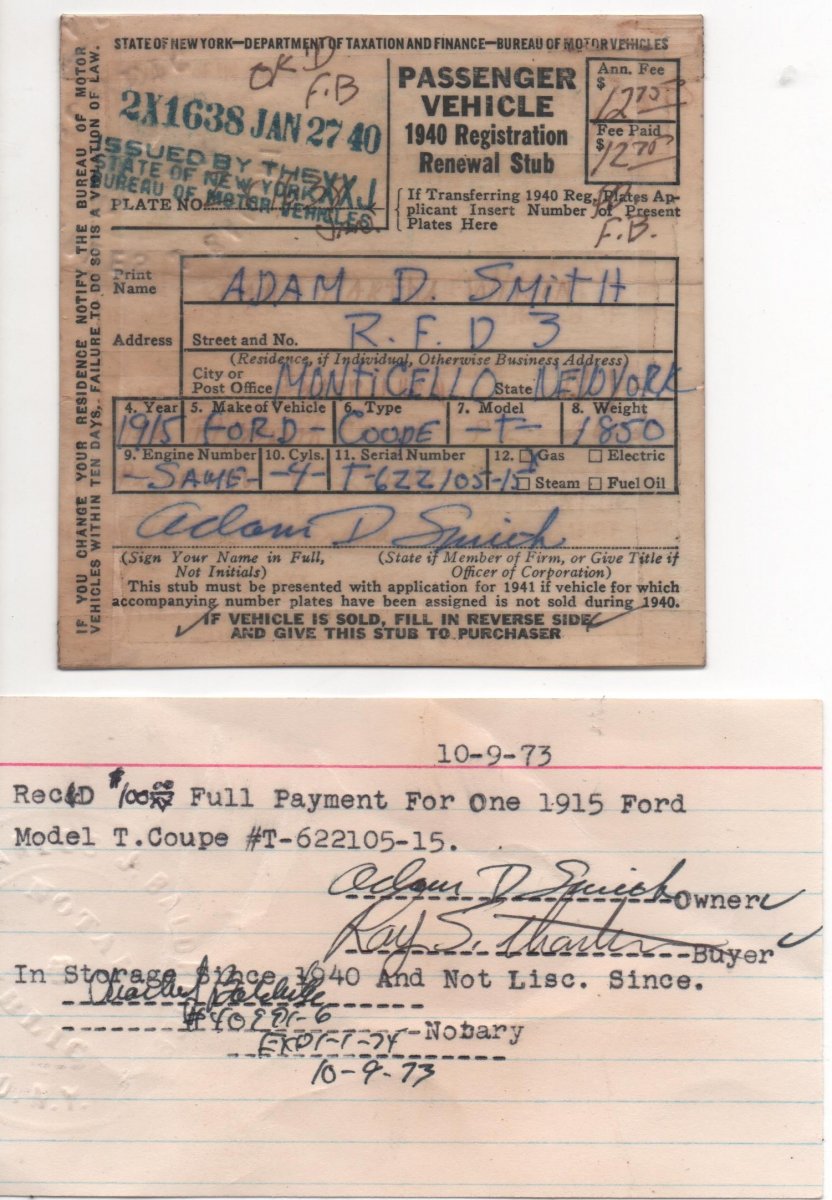 STATE OF NEW YORK—DEPARTMENT OF TAXATION AND FINANCE—BUREAU OF MOTOR VEHICLES
OK'D
F.B
2X1638 JAN 27 40
ISSUED BY THE
STATE OF NEW YORK XXJ
BUREAU OF MOTOR VEHICLES
PLATE NO.
PASSENGER
VEHICLE
1940 Registration
Renewal Stub
Ann. Fee
$ 12.75
Fee Paid
$ 12.75
If Transferring 1940 Reg. Plates Ap-
plicant Insert Number of Present
Plates Here
F.B.
IF YOU CHANGE YOUR RESIDENCE NOTIFY THE BUREAU OF MOTOR
VEHICLES WITHIN TEN DAYS. FAILURE TO DO SO IS A VIOLATION OF LAW.
Print Name ADAM D. SMITH
Address Street and No. R. F. D 3
(Residence, if Individual, Otherwise Business Address)
City or Post Office MONTICELLO State NEW YORK
4. Year 5. Make of Vehicle 6. Type 7. Model 8. Weight
1915 FORD- COUPE -T- 1850
9. Engine Number 10. Cyls. 11. Serial Number 12. Gas Electric
-SAME- -4- T-622105-15 Steam Fuel Oil
Adam D Smith
(Sign Your Name in Full, (State if Member of Firm, or Give Title if
Not Initials) Officer of Corporation)
This stub must be presented with application for 1941 if vehicle for which
accompanying number plates have been assigned is not sold during 1940.
IF VEHICLE IS SOLD, FILL IN REVERSE SIDE
AND GIVE THIS STUB TO PURCHASER
10-9-73
Rec'D $100 00/XX Full Payment For One 1915 Ford
Model T.Coupe #T-622105-15.
Adam D Smith Owner
Ray S. Buyer
In Storage Since 1940 And Not Lisc. Since.
-Notary
10-9-73